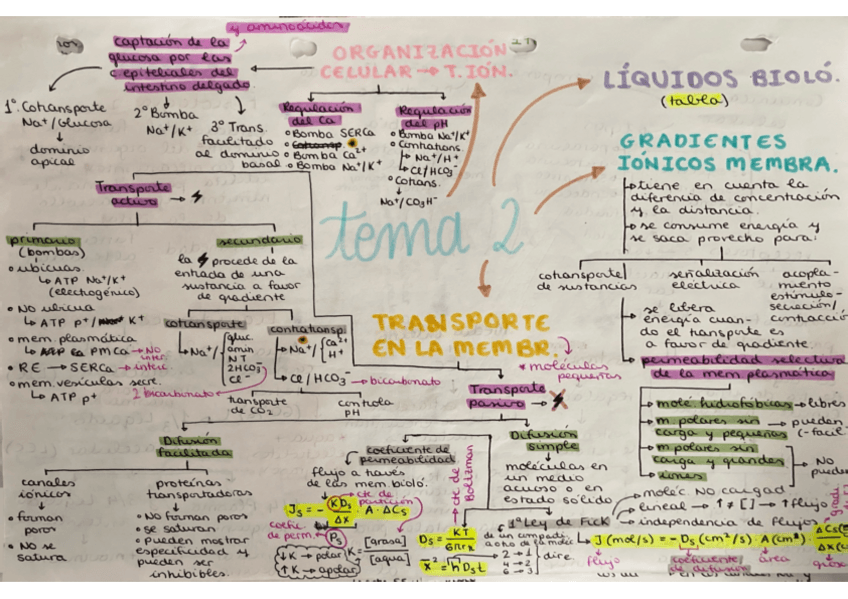 y aminoácidos
captación de la
glucosa por las
c epiteliales del
intestino delgado
1º Cotransporte
Na+/Glucosa
dominio
apical
2º Bomba
Na+/K+
3º Trans.
facilitado
al dominio
basal
ORGANIZACIÓN
CELULAR → T. IÓN.
Regulación
del Ca
• Bomba SERCa
• Bomba Ca2+
• Bomba Na+/K+
Regulación
del pH
• Bomba Na+/K+
• Contratrans.
↳ Na+/H+
↳ Cl/HCO3-
• Cotrans.
Na+/CO3H-
LÍQUIDOS BIOLÓ.
(tabla)
GRADIENTES
IÓNICOS MEMBRA.
tiene en cuenta la
diferencia de concentración
y la distancia.
se consume energía y
se saca provecho para:
cotransporte
de sustancias
señalización
eléctrica
acopla-
miento
estímulo-
secreción/
contracción
se libera
energía cuan-
do el transporte es
a favor de gradiente.
permeabilidad selectiva
de la mem. plasmática
moléc. hidrofóbicas → libres
m. polares sin
carga y pequeñas → pueden
(-fácil
m. polares sin
carga y grandes
iones
No
pueden
tema 2
Transporte
activo →
primario
(bombas)
• ubicuas
↳ ATP Na+/K+
(electrogénico)
• No ubicua
↳ ATP P+/ K+
• mem. plasmática
↳ PMCa → No
inter.
• RE → SERCa → interic
• mem. vesículas secre.
↳ ATP P+
secundario
la procede de la
entrada de una
sustancia a favor
de gradiente
cotransporte
Na+/
gluc
amin
NT
2HCO3-
Cl-
2 bicarbonato
transporte
de CO2
contratransp.
Na+/
Ca2+
H+
Cl/HCO3- → bicarbonato
controla
pH
TRANSPORTE
EN LA MEMBR.
* moléculas
pequeñas
Transporte
pasivo →
Difusión
facilitada
canales
iónicos
• forman
poros
• No se
satura
proteínas
transportadoras
• No forman poros
• se saturan
• pueden mostrar
especificidad y
pueden ser
inhibibles.
coeficiente de
permeabilidad
flujo a través
de las mem. bioló.
cte de
partición
Js = - KDs/Δx · A · ΔCs
coefic.
de perm.
Ps
↓K → polar
↑K → apolar
K = [grasa]/[agua]
cte de
Boltzman
Ds = KT/6πrη
x̄² = n Ds t
2 → 1
4 → 2
6 → 3
dire.
Difusión
simple
moléculas en
un medio
acuoso o en
estado sólido
1ª Ley de Fick
moléc. No cargad.
lineal → ↑ ≠ [ ] → ↑ flujo
independencia de flujos
J (mol/s) = - Ds (cm²/s) · A (cm²) · ΔCs/Δx
flujo
coeficiente
de difusión
área